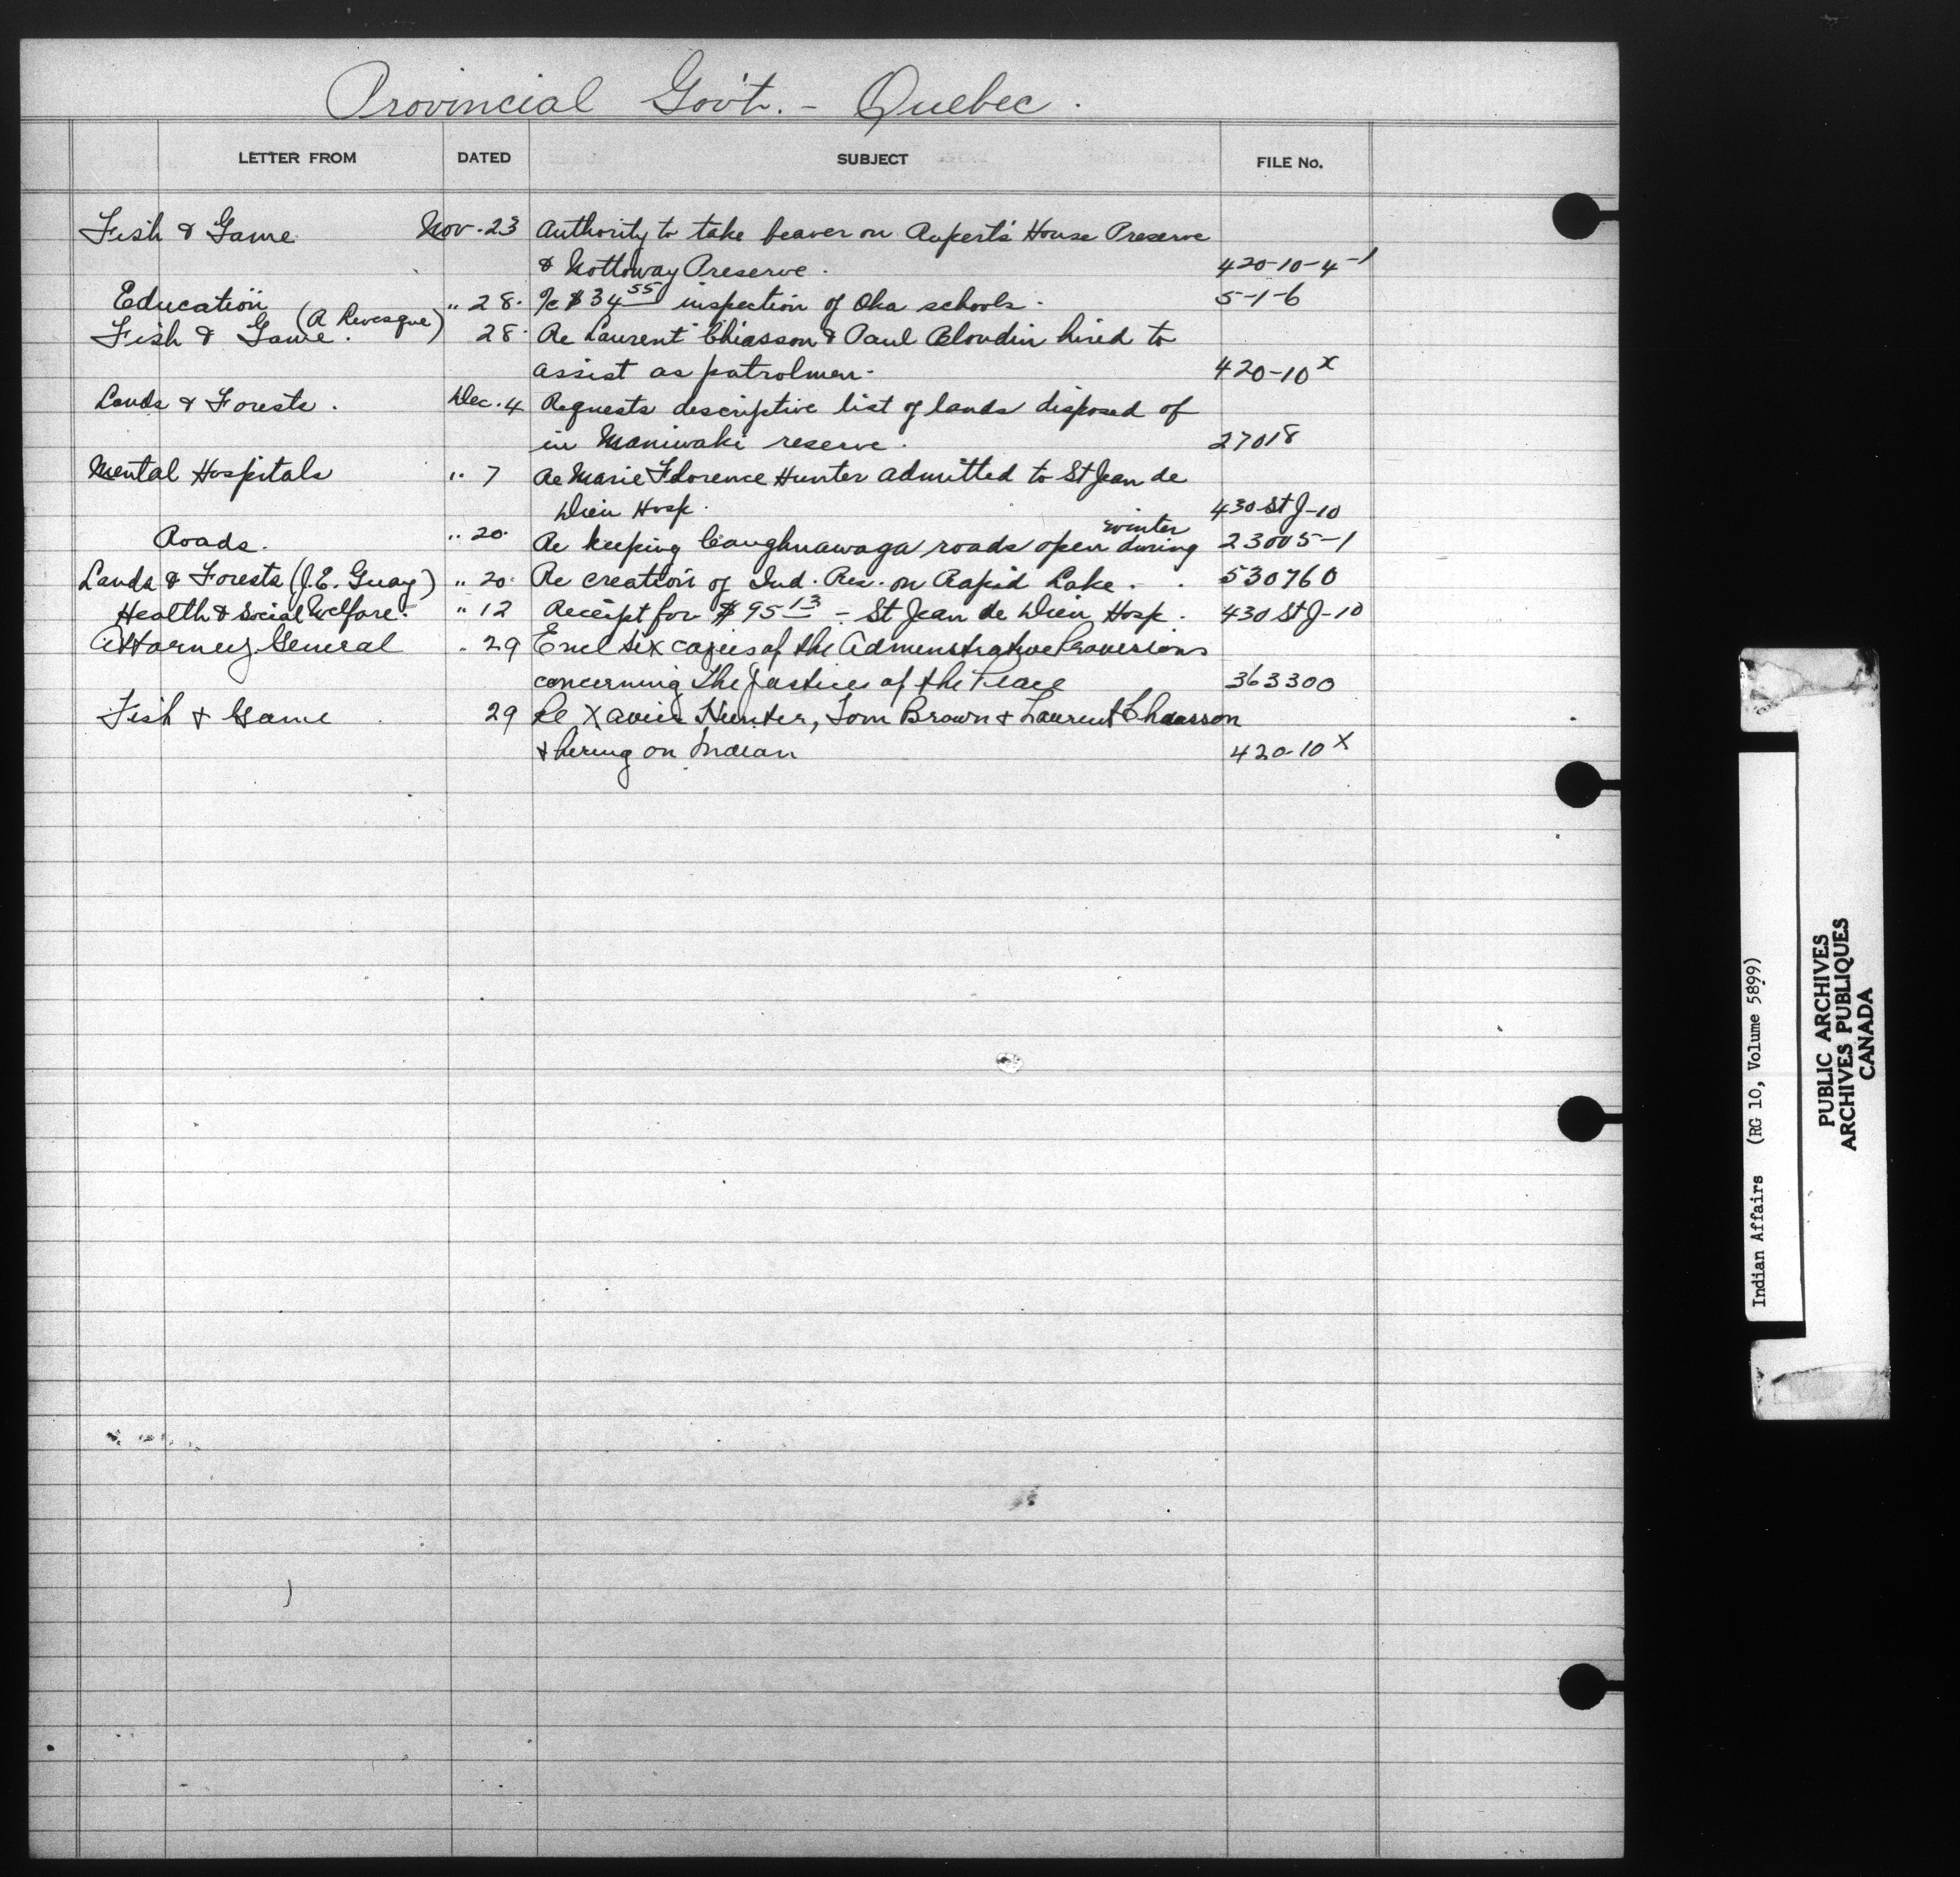 Provincial Gov't. - Quebec.
LETTER FROM DATED SUBJECT FILE No.
Fish & Game Nov. 23 Authority to take beaver on Rupert's House Preserve
& Nottoway Preserve. 420-10-4-1
Education " 28. a/c $34.55 inspection of Oka schools. 5-1-6
Fish & Game. (A Levesque) 28. Re Laurent Chiasson & Paul Blondin hired to
assist as patrolmen. 420-10 x
Lands & Forests. Dec. 4 Requests descriptive list of lands disposed of
in Maniwaki reserve. 27018
Mental Hospitals " 7 Re Marie Florence Hunter admitted to St Jean de
Dieu Hosp. 430 St J-10
Roads. " 20. Re keeping Caughnawaga roads open during winter 23005-1
Lands & Forests (J.E. Guay) " 20. Re creation of Ind. Res. on Rapid Lake. 530760
Health & Social Welfare. " 12 Receipt for $95 13 - St Jean de Dieu Hosp. 430 St J-10
Attorney General " 29 Encl six copies of the Adminstrative Proversions
concerning The Justices of the Peace 363300
Fish & Game 29 Re Xavier Hunter, Tom Brown & Laurent Chiasson
& hiring on Indian 420-10 x
Indian Affairs (RG 10, Volume 5899)
PUBLIC ARCHIVES
ARCHIVES PUBLIQUES
CANADA